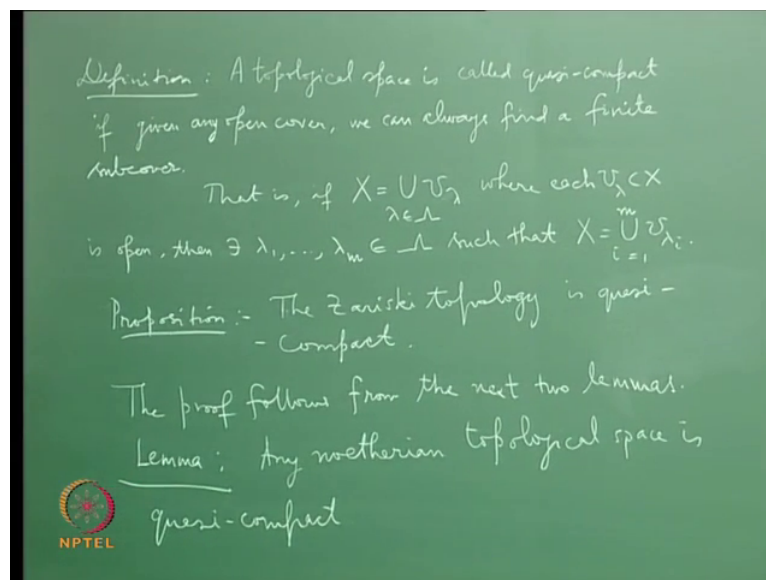 Definition : A topological space is called quasi-compact
if given any open cover, we can always find a finite
subcover.
That is, if X = ∪ U_λ where each U_λ ⊂ X
λ∈Λ
is open, then ∃ λ₁, ..., λ_m ∈ Λ such that X = ∪_{i=1}^{m} U_{λ_i}.
Proposition :- The Zariski topology is quasi-
- compact.
The proof follows from the next two lemmas.
Lemma : Any noetherian topological space is
quasi-compact
NPTEL